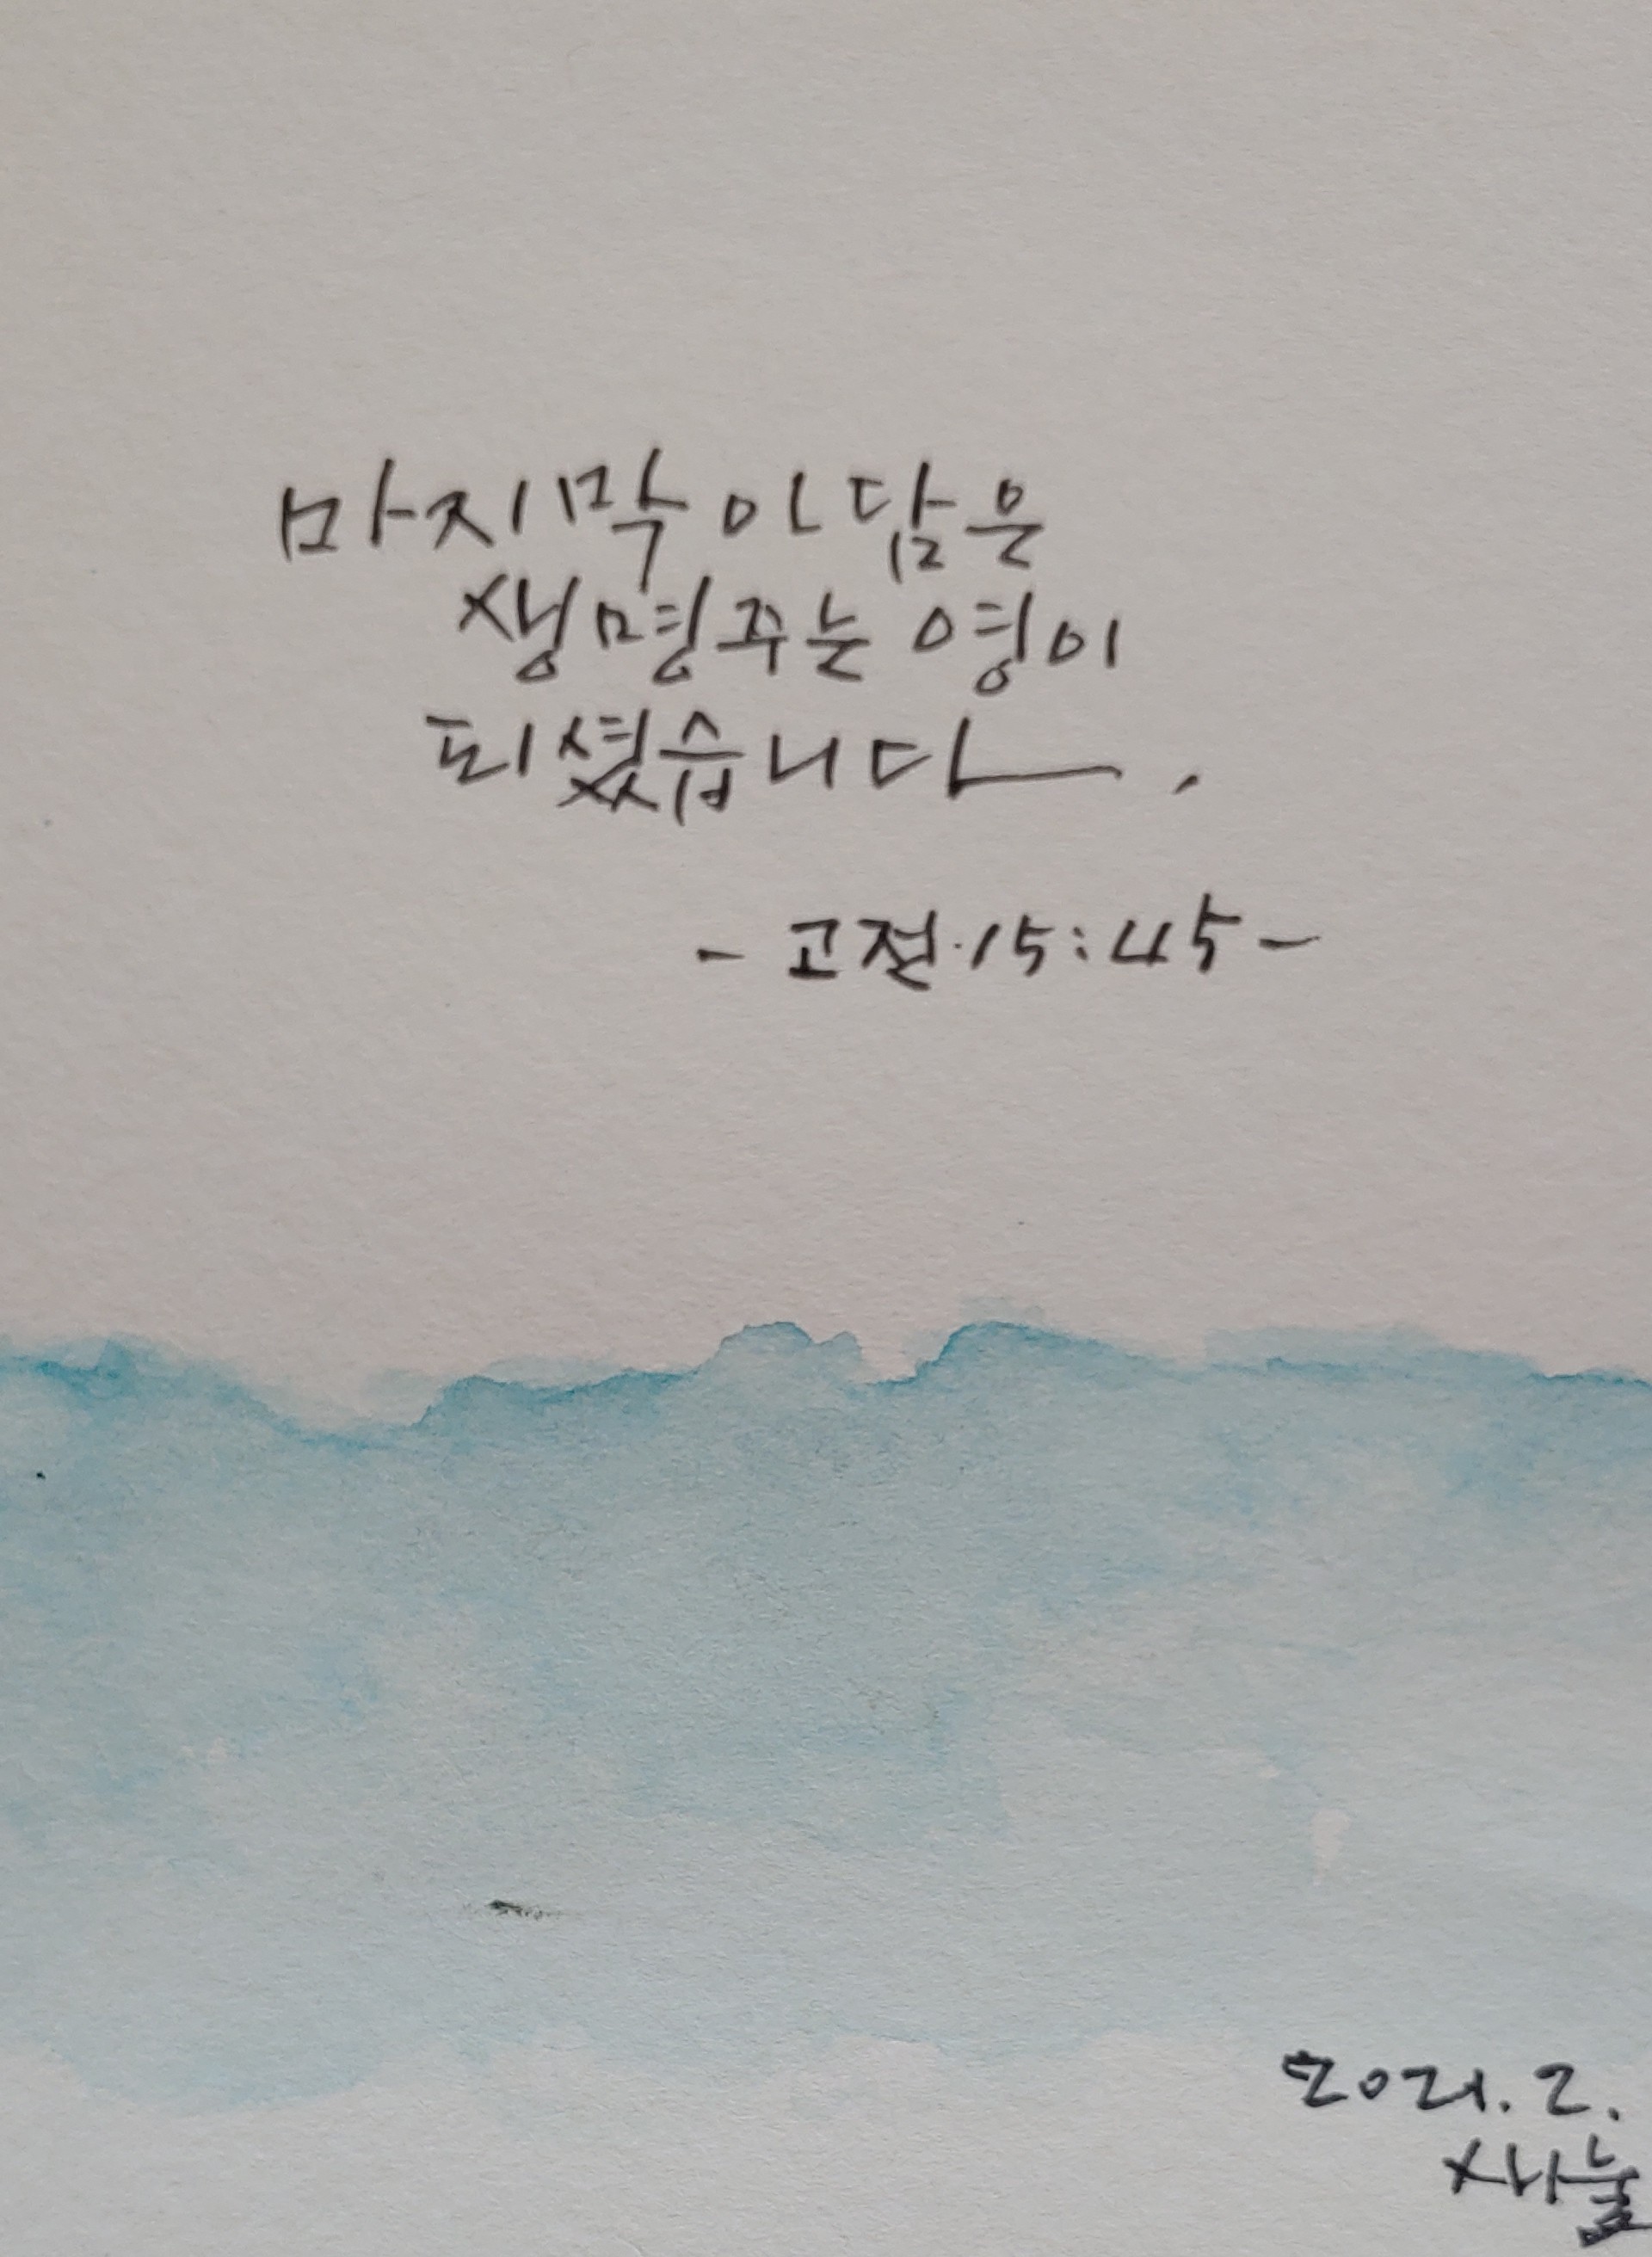 마지막 아담은
생명주는 영이
되셨습니다.
- 고전.15:45 -
2021. 2.